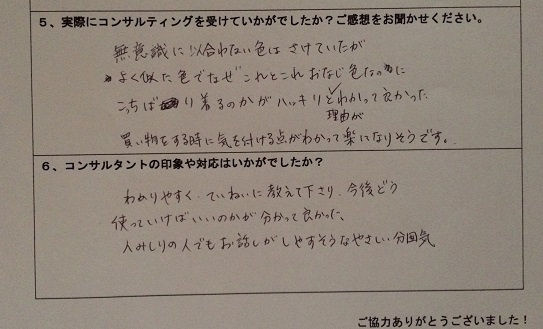 5、実際にコンサルティングを受けていかがでしたか？ご感想をお聞かせください。
無意識に似合わない色はさけていたが
よく似た色でなぜこれとこれおなじ色なのに
こっちばっかり着るのかがハッキリとわかって良かった
理由が
買い物をする時に気を付ける点がわかって楽になりそうです。
6、コンサルタントの印象や対応はいかがでしたか？
わかりやすく、ていねいに教えて下さり、今後どう
使っていけばいいのかが分かって良かった。
人みしりの人でもお話しがしやすそうなやさしい分囲気
ご協力ありがとうございました！